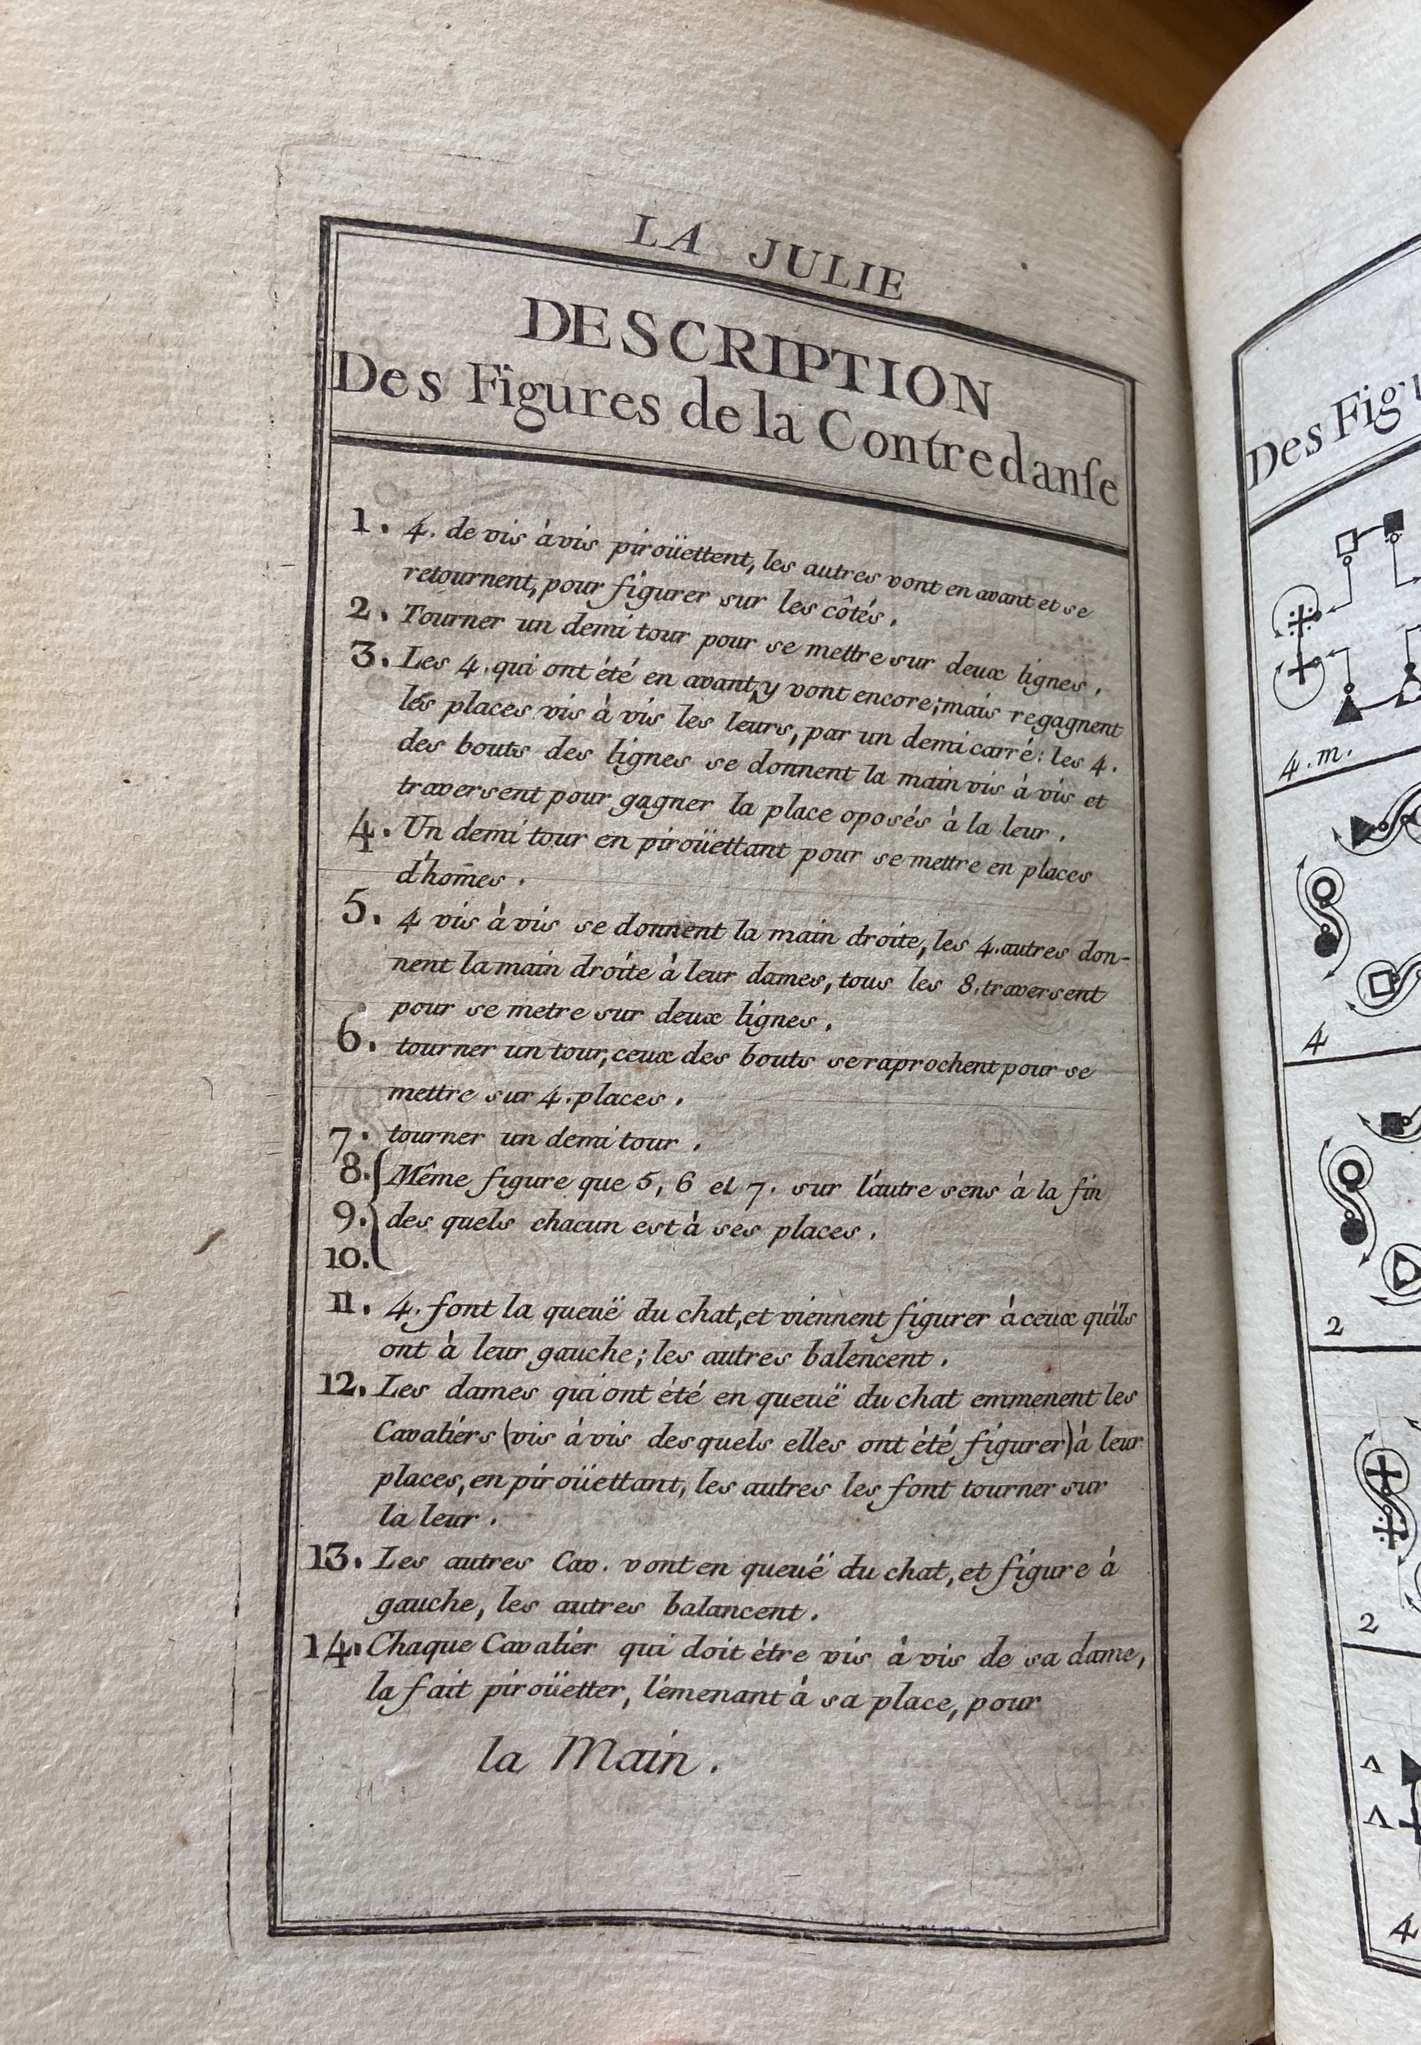 LA JULIE
DESCRIPTION
Des Figures de la Contredanſe
1. 4. de vis à vis piroüettent, les autres vont en avant et se
retournent, pour figurer sur les côtés.
2. Tourner un demi tour pour se mettre sur deux lignes.
3. Les 4. qui ont été en avant, y vont encore; mais regagnent
lés places vis à vis les leurs, par un demi carré: les 4.
des bouts des lignes se donnent la main vis à vis et
traversent pour gagner la place oposés à la leur.
4. Un demi tour en piroüettant pour se mettre en places
d'hom̄es.
5. 4 vis à vis se donnent la main droite, les 4. autres don-
nent la main droite à leur dames, tous les 8. traversent
pour se metre sur deux lignes.
6. tourner un tour, ceux des bouts se raprochent pour se
mettre sur 4. places.
7. tourner un demi tour.
8. Même figure que 5, 6 et 7. sur l'autre sens à la fin
9. des quels chacun est à ses places.
10.
11. 4. font la queuë du chat, et viennent figurer à ceux qu'ils
ont à leur gauche; les autres balencent.
12. Les dames qui ont été en queuë du chat emmenent les
Cavaliers (vis à vis desquels elles ont été figurer) à leur
places, en piroüettant, les autres les font tourner sur
la leur.
13. Les autres Cav. vont en queuë du chat, et figure à
gauche, les autres balancent.
14. Chaque Cavalier qui doit étre vis à vis de sa dame,
la fait piroüetter, l'émenant à sa place, pour
la Main.
Des Fig
4. m.
4
2
2
4